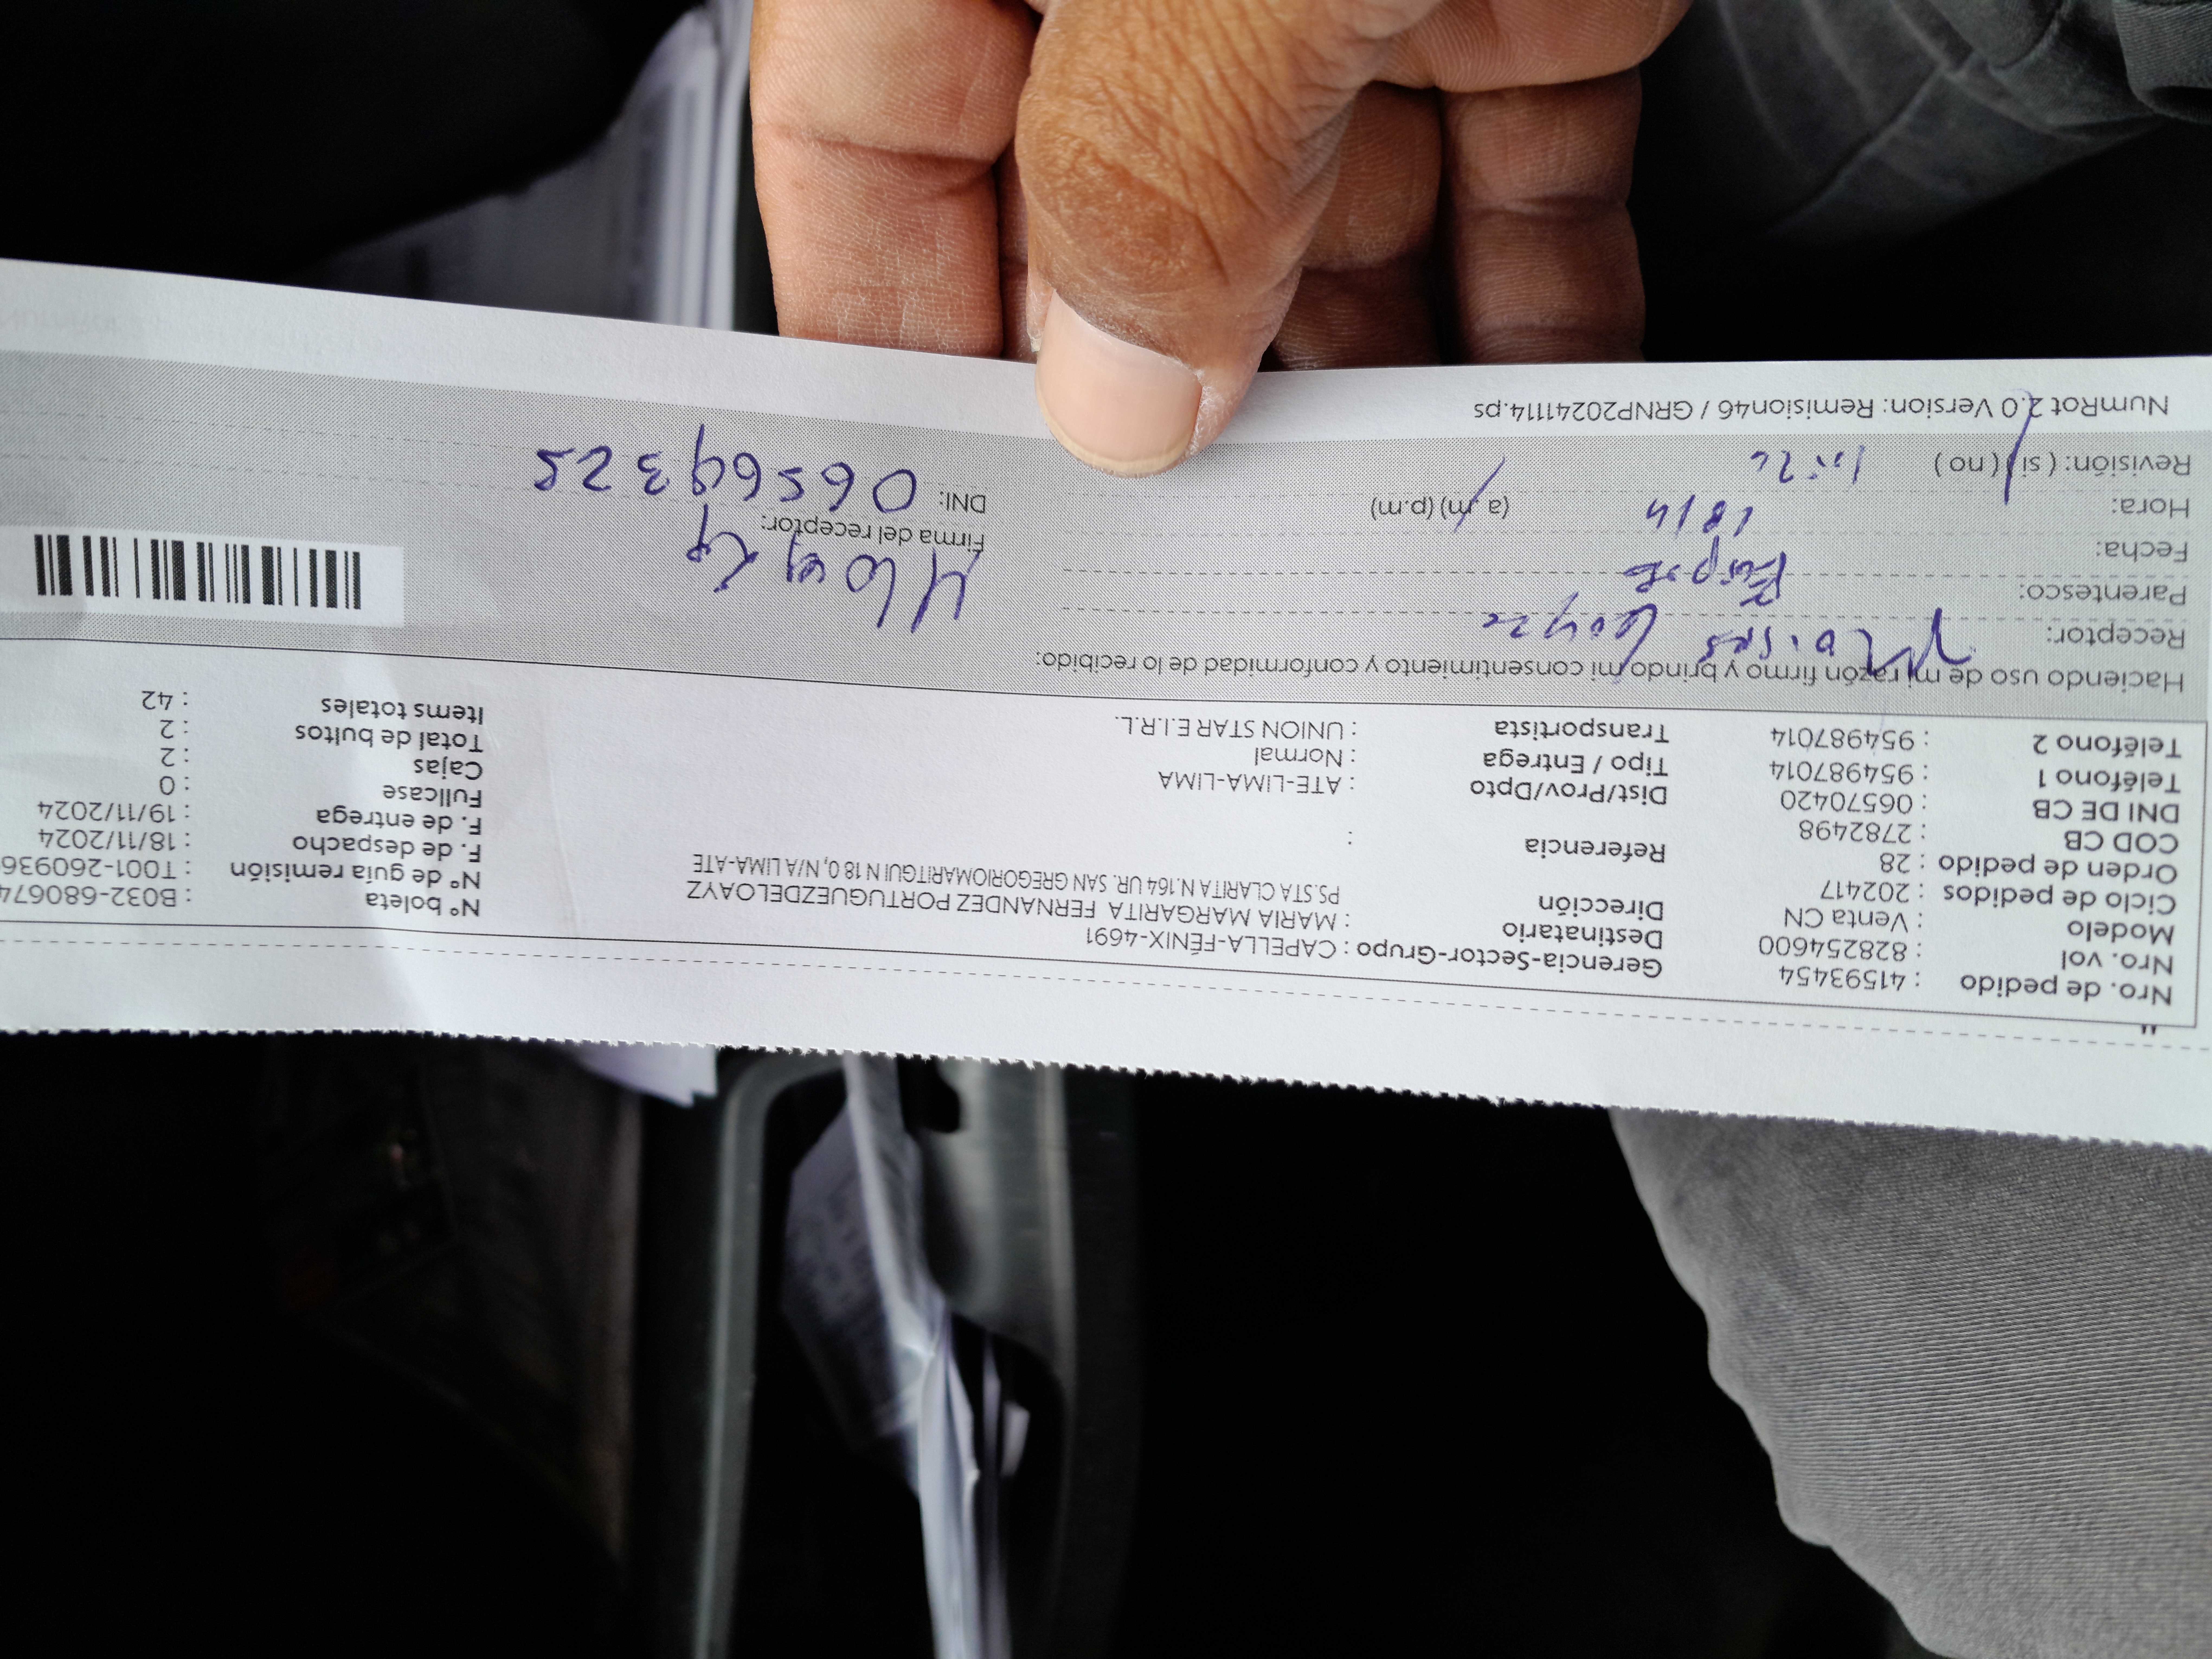 Nro. de pedido : 41593454
Nro. vol : 828254600
Modelo : Venta CN
Ciclo de pedidos : 202417
Orden de pedido : 28
COD CB : 2782498
DNI DE CB : 06570420
Teléfono 1 : 954987014
Teléfono 2 : 954987014
Gerencia-Sector-Grupo : CAPELLA-FÉNIX-4691
Destinatario : MARIA MARGARITA FERNANDEZ PORTUGUEZDELOAYZ
Dirección PS.STA CLARITA N.164 UR. SAN GREGORIOMARITGUI N 18 0, N/A LIMA-ATE
Referencia :
Dist/Prov/Dpto : ATE-LIMA-LIMA
Tipo / Entrega : Normal
Transportista : UNION STAR E.I.R.L.
N° boleta : B032-680674
N° de guía remisión : T001-260936
F. de despacho : 18/11/2024
F. de entrega : 19/11/2024
Fullcase : 0
Cajas : 2
Total de bultos : 2
Items totales : 42
Haciendo uso de mi razón firmo y brindo mi consentimiento y conformidad de lo recibido:
Receptor: Moises Loayza
Parentesco:
Fecha:
Hora: (a.m) (p.m)
Revisión: ( si ) ( no )
Firma del receptor:
DNI: 06569325
NumRot 2.0 Version: Remision46 / GRNP20241114.ps